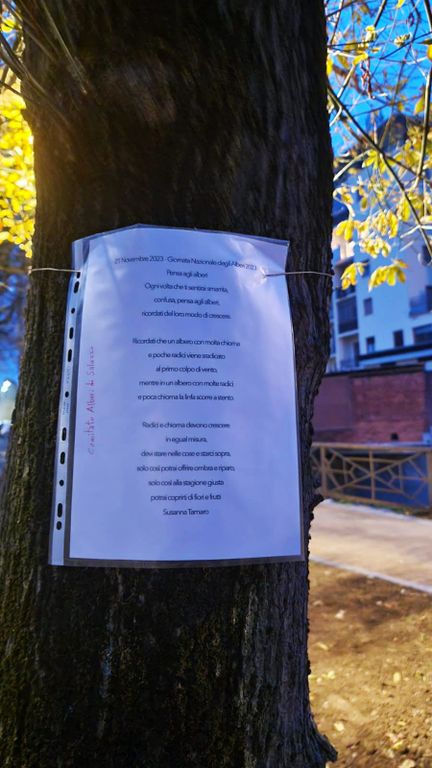 21 Novembre 2023 - Giornata Nazionale degli Alberi 2023
Pensa agli alberi
Ogni volta che ti sentirai smarrita,
confusa, pensa agli alberi,
ricordati del loro modo di crescere.
Ricordati che un albero con molta chioma
e poche radici viene sradicato
al primo colpo di vento,
mentre in un albero con molte radici
e poca chioma la linfa scorre a stento.
Radici e chioma devono crescere
in egual misura,
devi stare nelle cose e starci sopra,
solo così potrai offrire ombra e riparo,
solo così alla stagione giusta
potrai coprirti di fiori e frutti
Susanna Tamaro
Comitato Alberi di Saluzzo